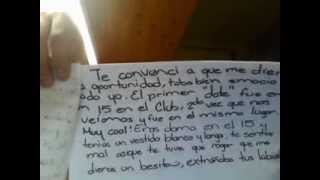 Te convencí a que me dier
oportunidad, tutas bien emocio
ado yo. El primer "date" fue en
15 en el Club, 2da vez que nos
veíamos y fue en el mismo lugar.
Muy cool! Eras dama en el 15 y
tenías un vestido blanco y largo, te sentías
mal asi que te tuve que rogar que me
dieras un besito, extrañaba tus labios